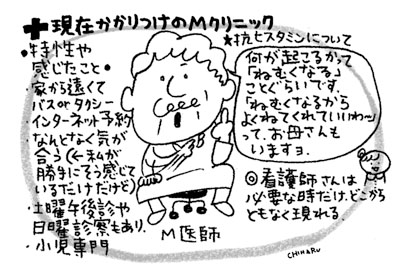 ✚現在かかりつけのMクリニック
・特性や
感じたこと・
・家から遠くて
バスorタクシー
・インターネット予約
・なんとなく気が
合う(←私が
勝手にそう感じて
いるだけだけど)
・土曜午後診や
日曜診察もあり.
・小児専門
M医師
★抗ヒスタミンについて
何が起こるかって
「ねむくなる」
ことぐらいです.
「ねむくなるから
よくねてくれていいわ〜」
って、お母さんも
いますョ.
◎看護師さんは
必要な時だけ、どこから
ともなく現れる.
CHIHARU